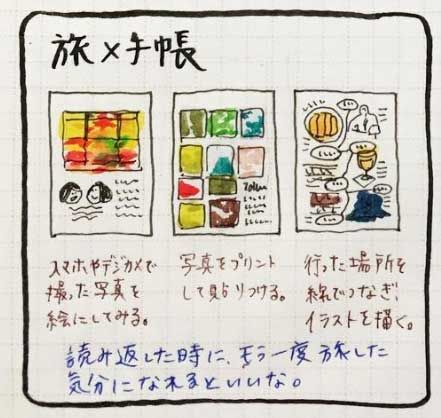 旅×手帳
スマホやデジカメで
撮った写真を
絵にしてみる。
写真をプリント
して貼りつける。
行った場所を
線でつなぎ、
イラストを描く。
読み返した時に、もう一度旅した
気分になれるといいな。